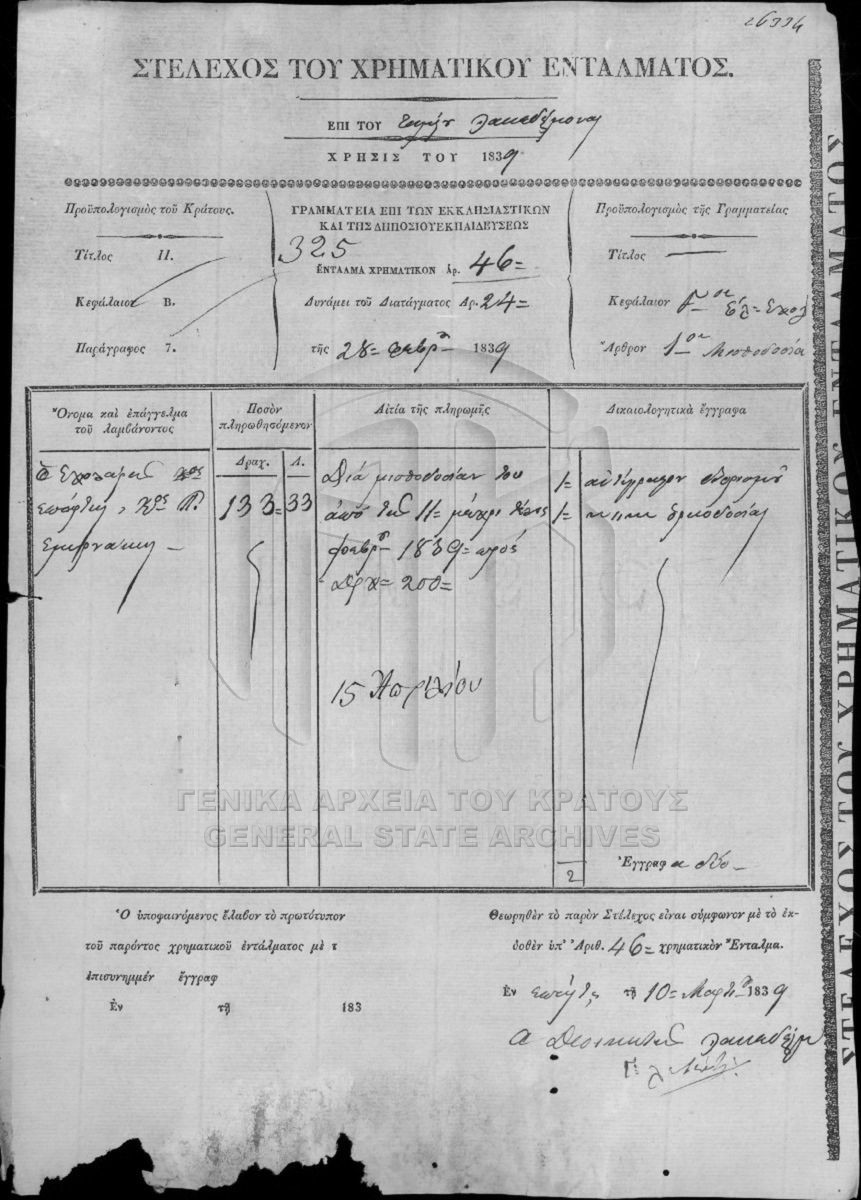 26334
ΣΤΕΛΕΧΟΣ ΤΟΥ ΧΡΗΜΑΤΙΚΟΥ ΕΝΤΑΛΜΑΤΟΣ.
ΕΠΙ ΤΟΥ Λακεδαίμονος
ΧΡΗΣΙΣ ΤΟΥ 1839
Προϋπολογισμὸς τοῦ Κράτους.
Τίτλος II.
Κεφάλαιον B.
Παράγραφος 7.
ΓΡΑΜΜΑΤΕΙΑ ΕΠΙ ΤΩΝ ΕΚΚΛΗΣΙΑΣΤΙΚΩΝ
ΚΑΙ ΤΗΣ ΔΗΜΟΣΙΟΥ ΕΚΠΑΙΔΕΥΣΕΩΣ
325
ΕΝΤΑΛΜΑ ΧΡΗΜΑΤΙΚΟΝ Ἀρ. 46=
Δυνάμει τοῦ Διατάγματος Ἀρ. 24=
τῆς 28= φεβρ 1839
Προϋπολογισμὸς τῆς Γραμματείας
Τίτλος —
Κεφάλαιον Ἑλ= Σχολ
Ἄρθρον 1ον Μισθοδοσία
Ὄνομα καὶ ἐπάγγελμα
τοῦ λαμβάνοντος
Ποσὸν
πληρωθησόμενον
Δραχ. Λ.
Αἰτία τῆς πληρωμῆς
Δικαιολογητικὰ ἔγγραφα
Ὁ Σχολάρχης
133= 33
Διὰ μισθοδοσίαν του
ἀπὸ τῆς 11= μέχρι τέλους
φεβρ 1839= πρὸς
Δρχ= 200=
15 Ἀπριλίου
1= ἀντίγραφον διορισμοῦ
1= ὁρκοδοσίας
2
Ἔγγραφα δύο—
ΓΕΝΙΚΑ ΑΡΧΕΙΑ ΤΟΥ ΚΡΑΤΟΥΣ
GENERAL STATE ARCHIVES
Ὁ ὑποφαινόμενος ἔλαβον τὸ πρωτότυπον
τοῦ παρόντος χρηματικοῦ ἐντάλματος μὲ τ
ἐπισυνημμέν ἔγγραφ
Ἐν τῇ 183
Θεωρηθὲν τὸ παρὸν Στέλεχος εἶναι σύμφωνον μὲ τὸ ἐκ-
δοθὲν ὑπ' Ἀριθ. 46= χρηματικὸν Ἔνταλμα.
Ἐν Σπάρτῃ τῇ 10= Μαρτ 1839
Ὁ Διοικητὴς Λακεδαίμ
ΣΤΕΛΕΧΟΣ ΤΟΥ ΧΡΗΜΑΤΙΚΟΥ ΕΝΤΑΛΜΑΤΟΣ